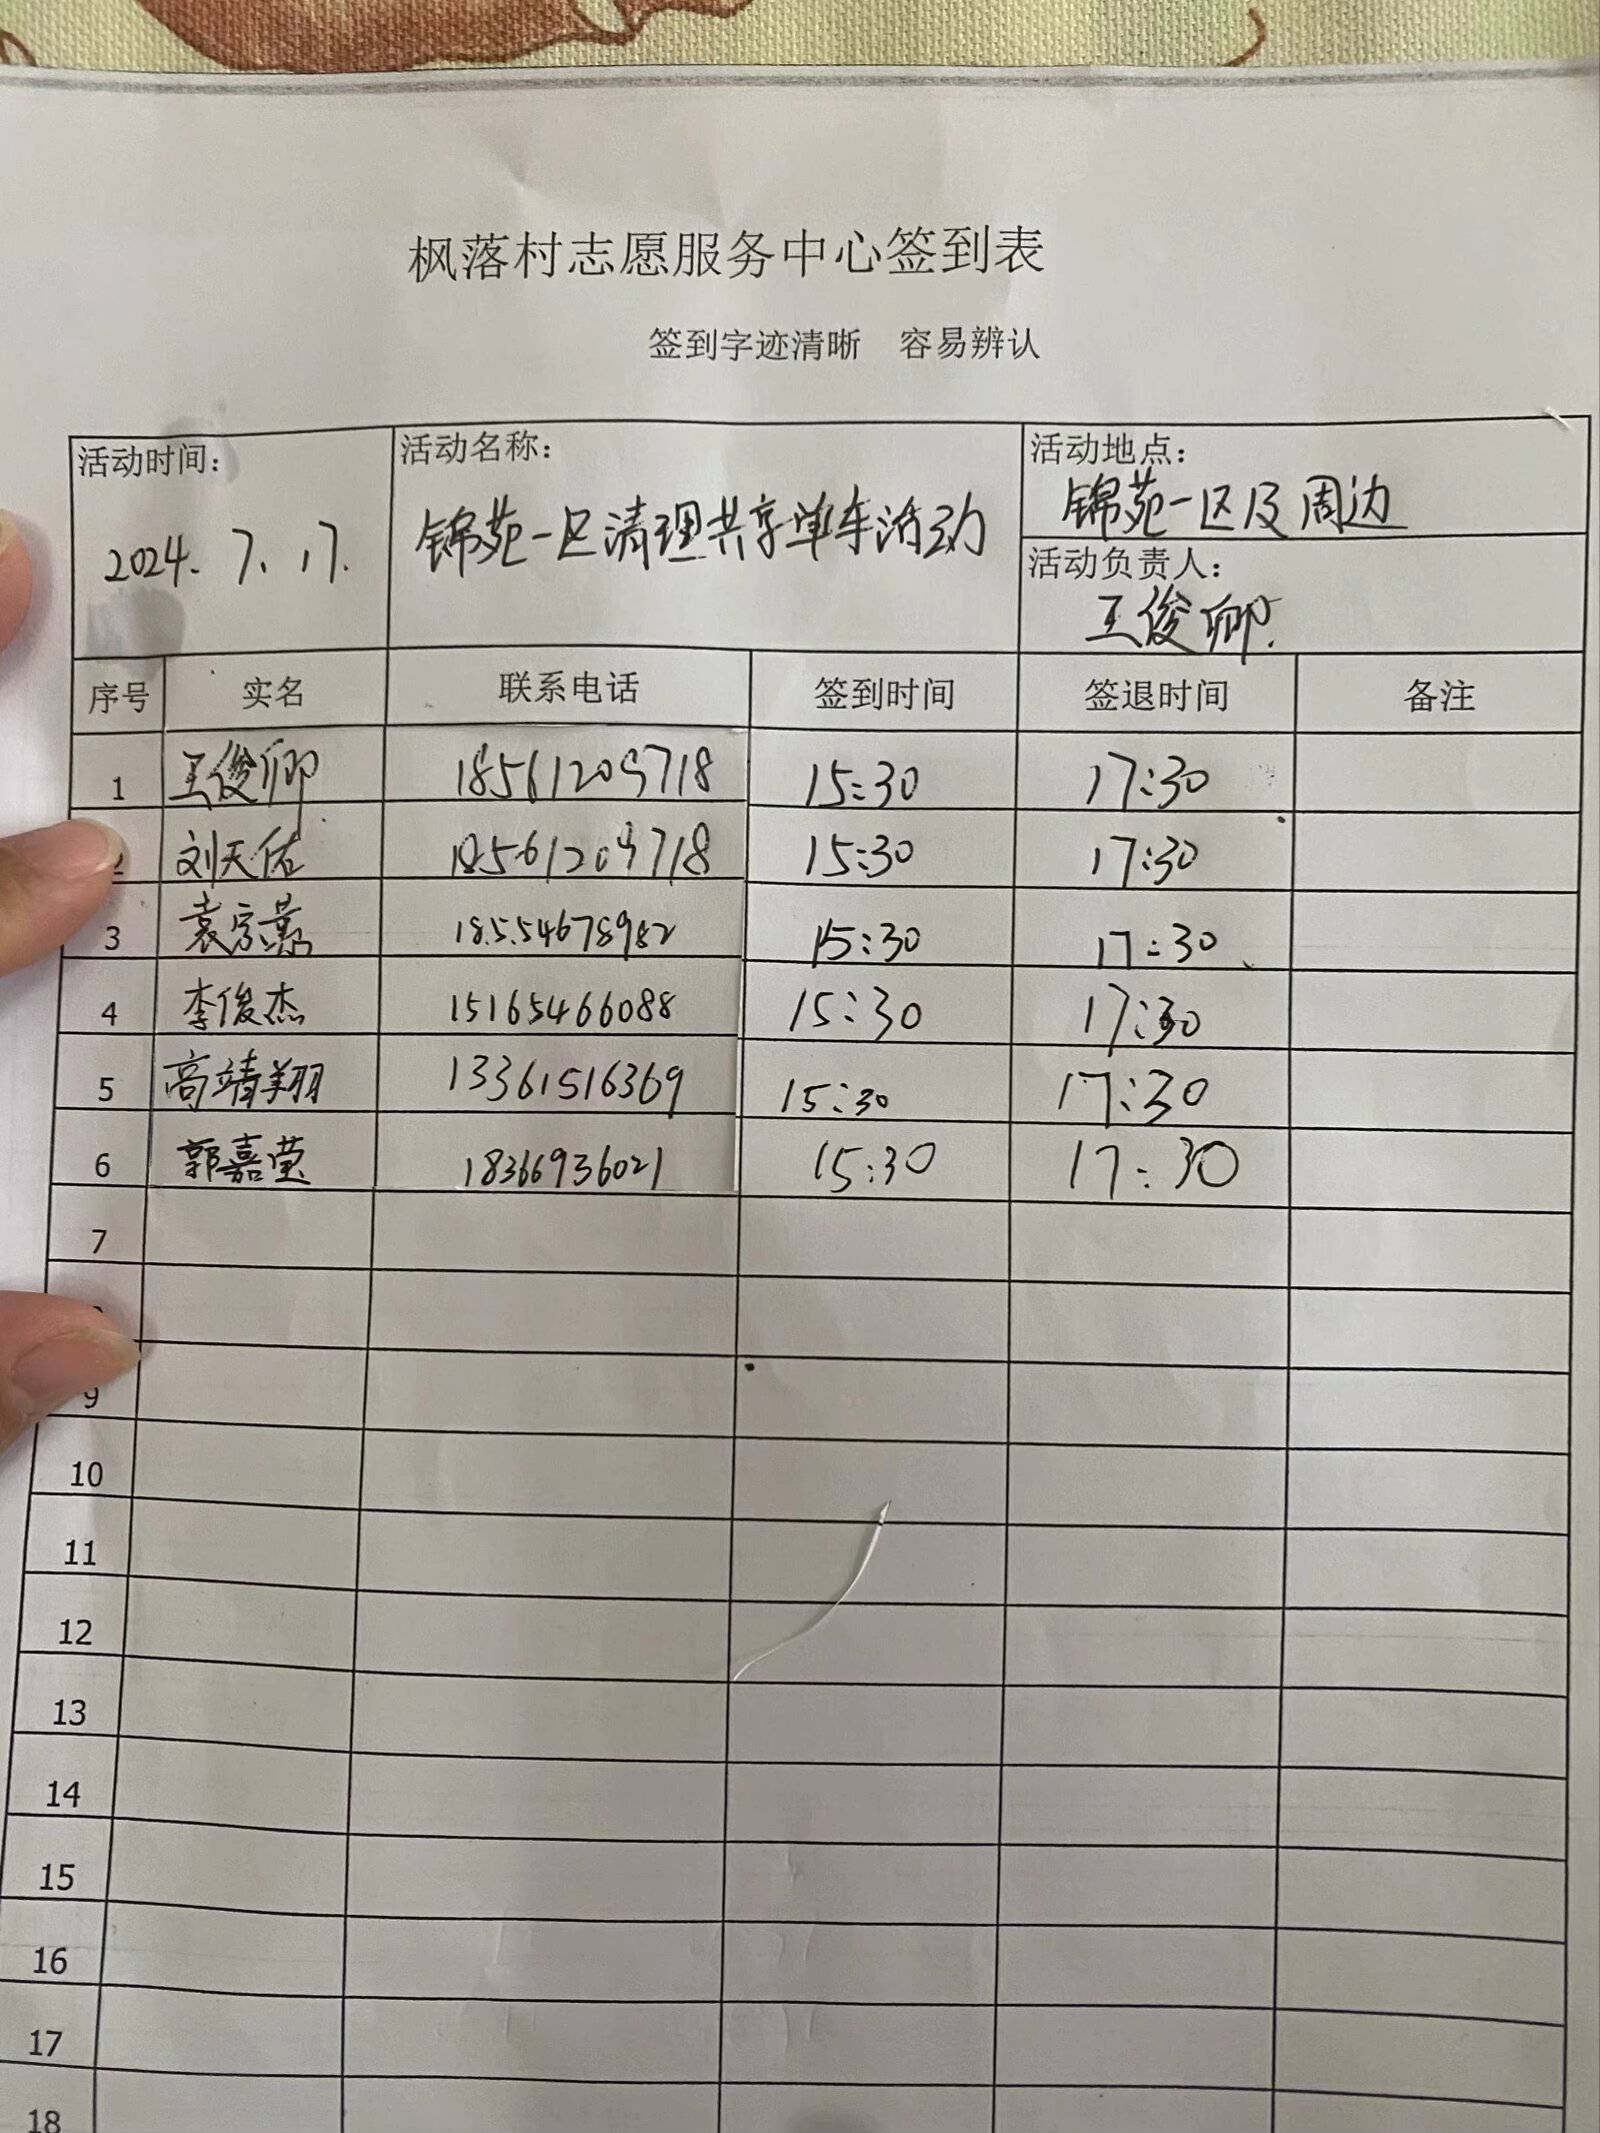 枫落村志愿服务中心签到表
签到字迹清晰 容易辨认
活动时间: 活动名称: 活动地点:
2024. 7. 17. 锦苑一区清理共享单车活动 锦苑一区及周边
活动负责人:
王俊卿
序号 实名 联系电话 签到时间 签退时间 备注
1 王俊卿 18561209718 15:30 17:30
2 刘天佑 18561209718 15:30 17:30
3 袁 18554678982 15:30 17:30
4 李俊杰 15165466088 15:30 17:30
5 高靖翔 13361516369 15:30 17:30
6 郭嘉莹 18366936021 15:30 17:30
7
9
10
11
12
13
14
15
16
17
18